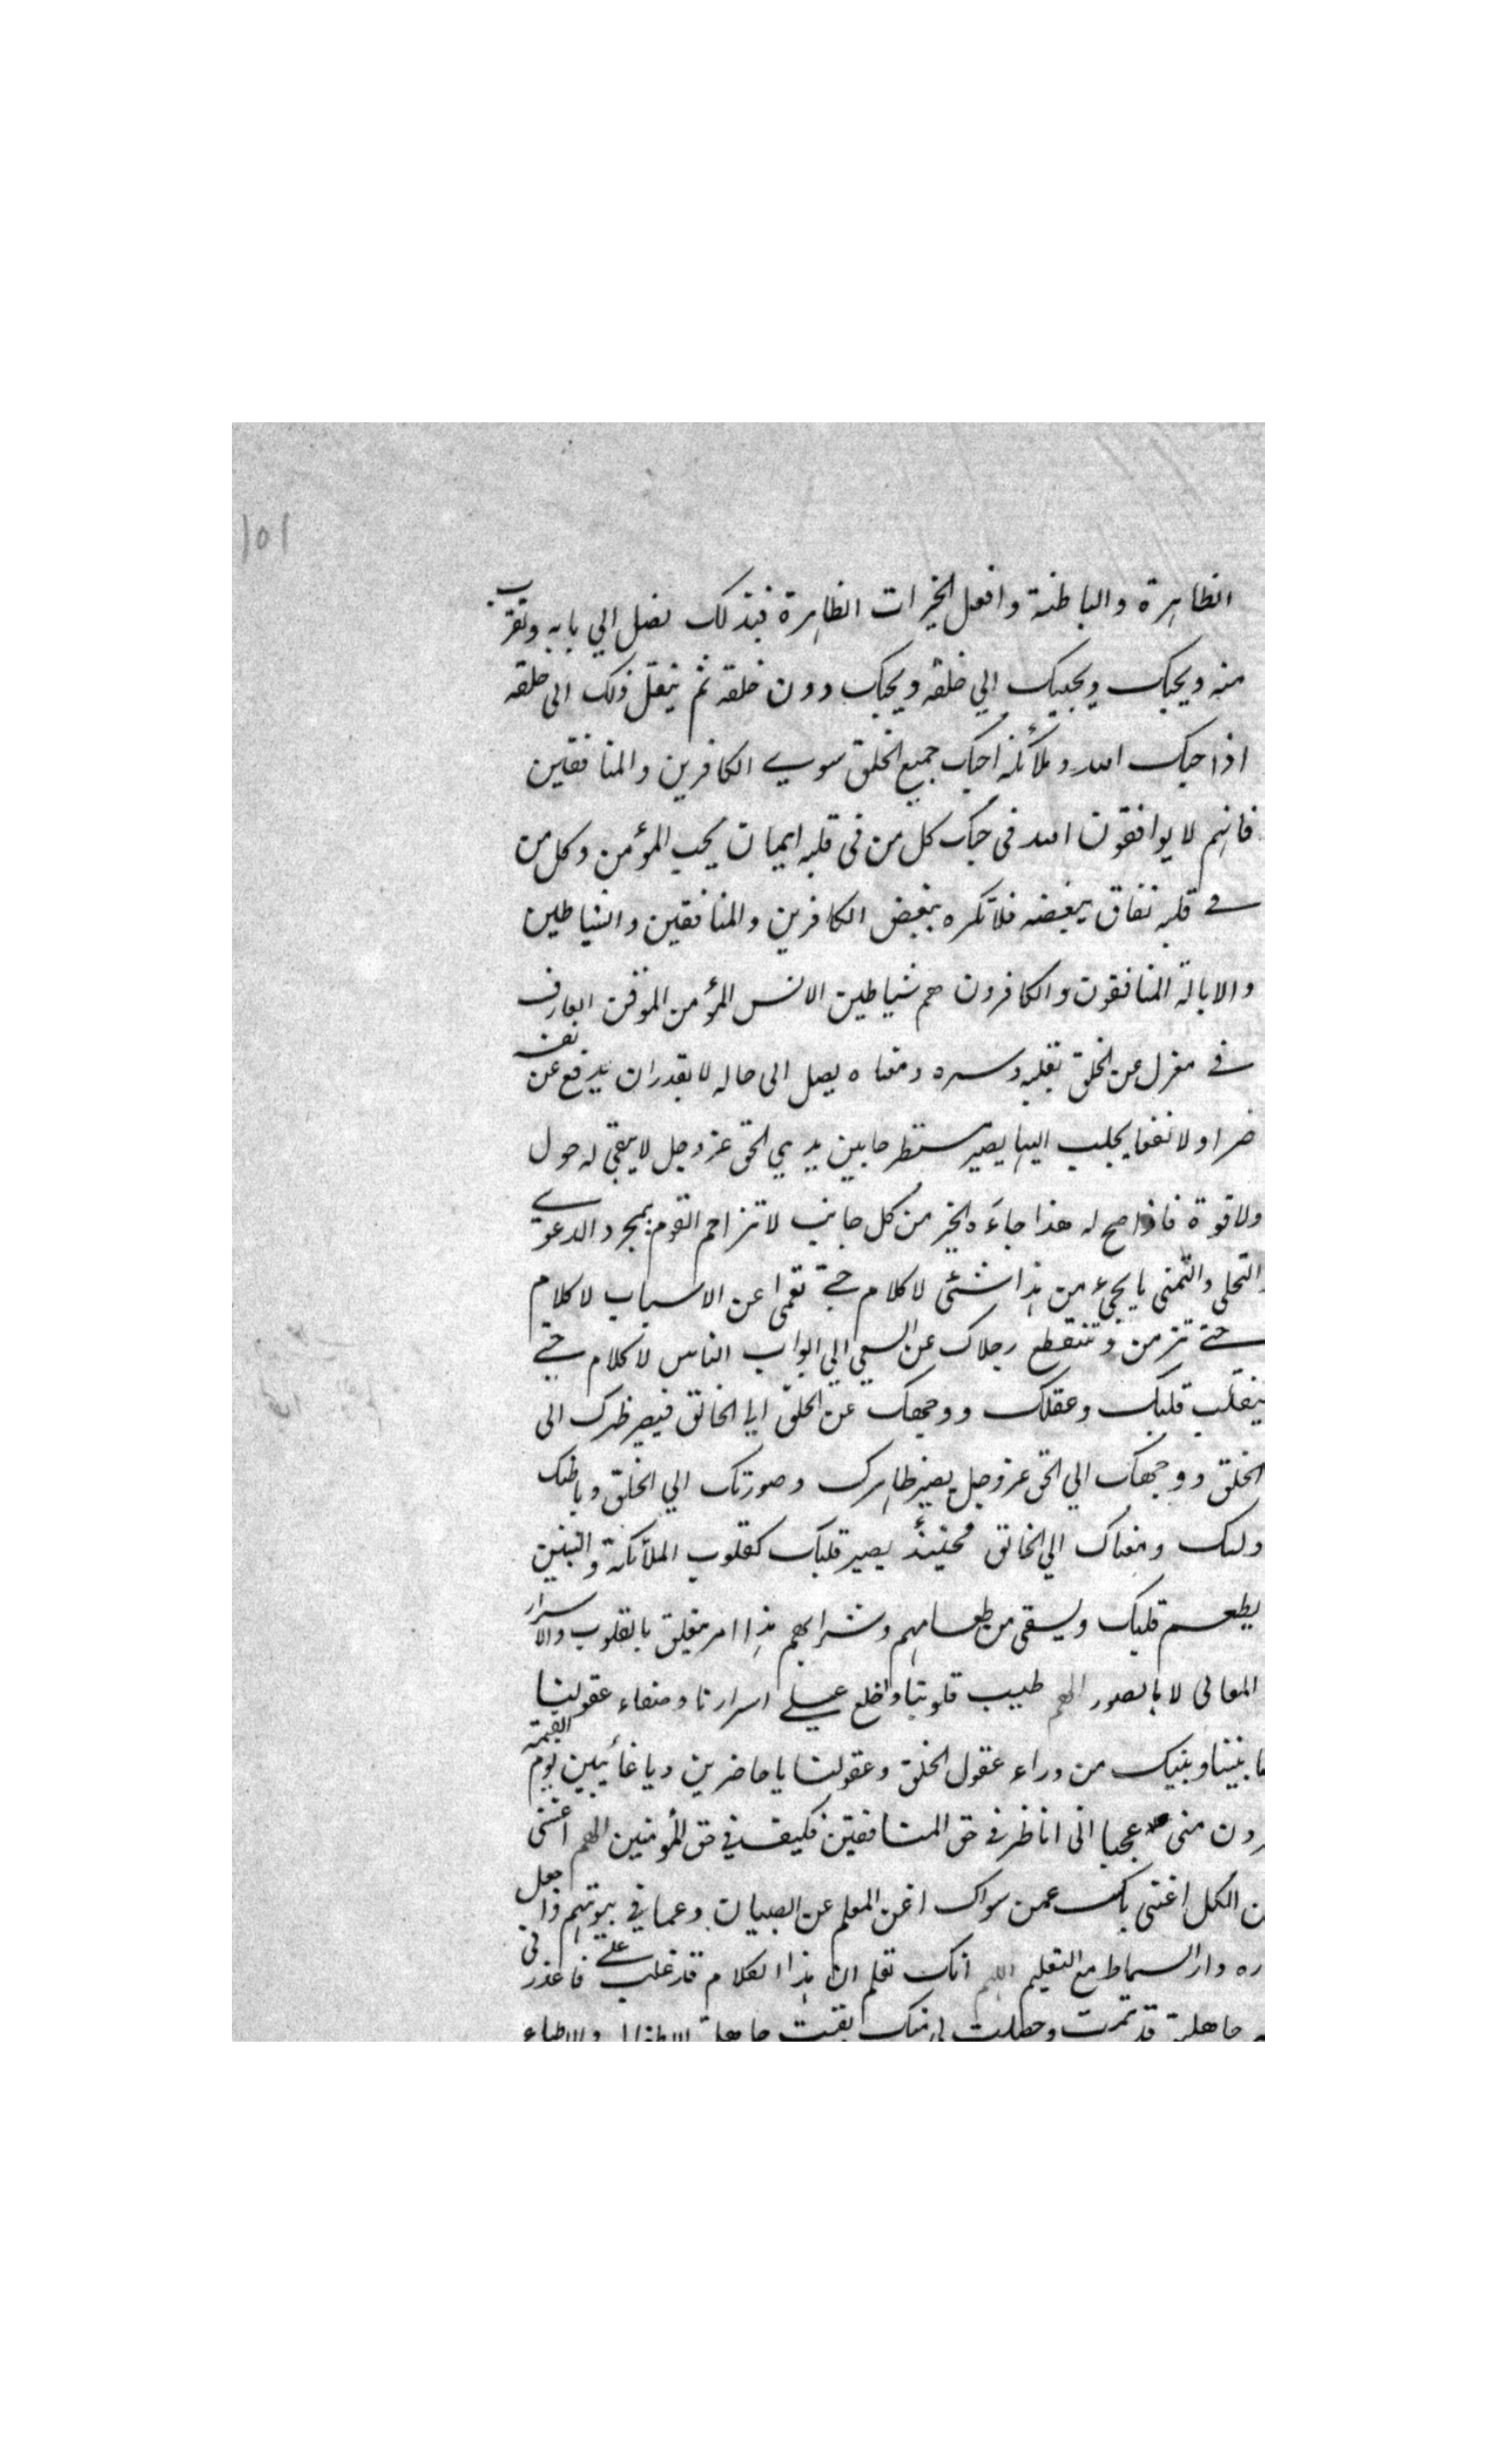 ١٥١
الظاهرة والباطنة وافعل الخيرات الظاهرة فبذلك تصل الي بابه وتقرب
منه ويحبك ويحببك الي خلقه ويحبك دون خلقه ثم ينقل ذلك الى خلقه
اذا حبك الله وملائكته احبك جميع الخلق سوي الكافرين والمنافقين
فانهم لا يوافقون الله في حبك كل من في قلبه ايمان يحب المؤمن وكل من
في قلبه نفاق يبغضه فلا تكره بغض الكافرين والمنافقين والشياطين
والابالة المنافقون والكافرون هم شياطين الانس المؤمن الموقن العارف
في معزل عن الخلق بقلبه وسره ومعناه يصل الى حاله لا يقدر ان يدفع عن نفسه
ضرا ولا نفعا يجلب اليها يصير مستطرحا بين يدي الحق عز وجل لا يبقي له حول
ولا قوة فاذا صح له هذا جاءه الخير من كل جانب لا تزاحم القوم بمجرد الدعوي
والتحلي والتمني يا يجيء من هذا شئ لا كلام حتي تعمى عن الاسباب لا كلام
حتي تزمن وتنقطع رجلاك عن السعي الي ابواب الناس لا كلام حتي
ينقلب قلبك وعقلك ووجهك عن الخلق الي الخالق فيصير ظهرك الى
الخلق ووجهك الي الحق عز وجل يصير ظاهرك وصورتك الي الخلق وباطنك
ولبك ومعناك الي الخالق فحينئذ يصير قلبك كقلوب الملائكة والنبيين
يطعم قلبك ويسقى من طعامهم وشرابهم هذا امر متعلق بالقلوب والاسرار
المعاني لا بالصور اللهم طيب قلوبنا واخلع علي اسرارنا وصفاء عقولنا
بيننا وبينك من وراء عقول الخلق وعقولنا يا حاضرين ويا غائبين يوم القيمة
رون منى عجبا اني اناظر في حق المنافقين فكيف في حق المؤمنين اللهم اغننى
ن الكل اغنني بك عمن سواك اغن المعلم عن الصبيان وعما في بيوتهم واجعل
ره دار السماط مع التعليم اللهم انك تعلم ان هذا الكلام قد غلب علي فاعذرني